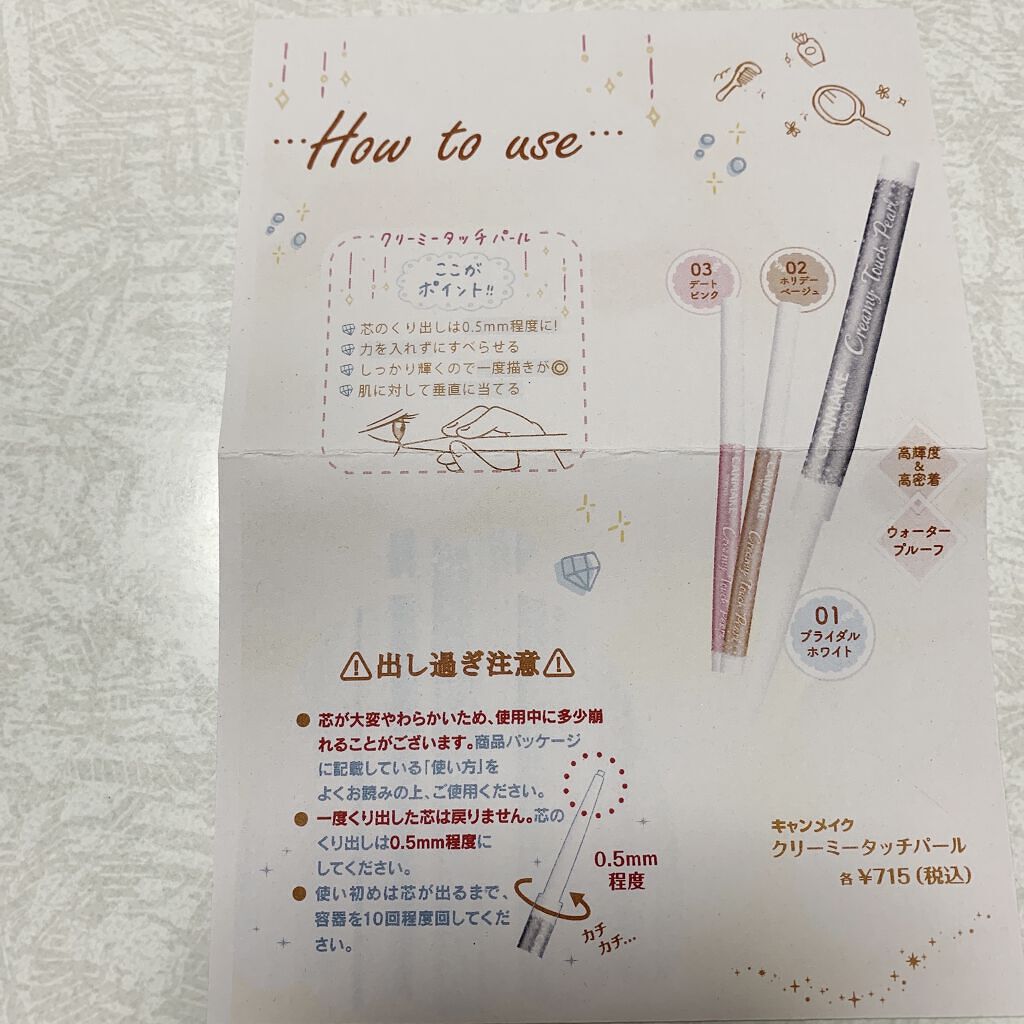 …How to use…
クリーミータッチパール
ここが
ポイント!!
芯のくり出しは0.5mm程度に!
力を入れずにすべらせる
しっかり輝くので一度描きが◎
肌に対して垂直に当てる
03
デート
ピンク
02
ホリデー
ベージュ
CANMAKE Creamy Touch Pearl
TOKYO
CANMAKE Creamy Touch Pearl
CANMAKE Creamy Touch Pearl
高輝度
&
高密着
ウォーター
プルーフ
01
ブライダル
ホワイト
出し過ぎ注意
● 芯が大変やわらかいため、使用中に多少崩
れることがございます。商品パッケージ
に記載している「使い方」を
よくお読みの上、ご使用ください。
● 一度くり出した芯は戻りません。芯の
くり出しは0.5mm程度に
してください。
● 使い初めは芯が出るまで、
容器を10回程度回してくだ
さい。
0.5mm
程度
カチ
カチ…
キャンメイク
クリーミータッチパール
各¥715(税込)